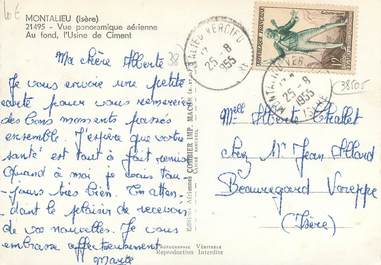 MONTALIEU (Isère)
21495 - Vue panoramique aérienne
Au fond, l'Usine de Ciment
Ma chère Alberte
Je vous envoie une petite
carte pour vous remercier
des bons moments passés
ensemble. J'espère que votre
santé est tout à fait remise
Quand à moi je vais tou-
jours très bien. En atten-
dant le plaisir de recevoir
de vos nouvelles. Je vous
embrasse affectueusement
MONTALIEU VERCIEU
25-8
1955
MONTALIEU VERCIEU
25-8
1955
ISERE
38505
Mell Alberte
chez Mr Jean Allard
Beauregard Voreppe
(Isère)
COMBIER IMP. MACON
PHOTOGRAPHIE VÉRITABLE
Reproduction Interdite